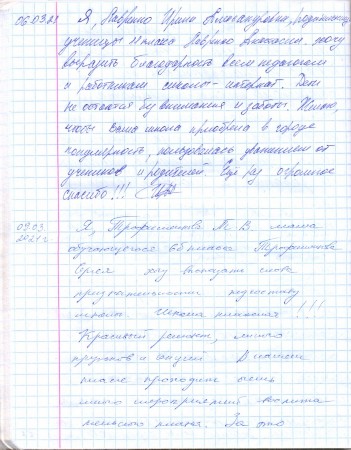 06.03.21 Я, Лавренко Ирина Александровна, родительница
ученицы класса Лавренко Анастасии, хочу
выразить благодарность всем педагогам
и работникам школы-интернат. Дети
не остаются без внимания и заботы. Желаю,
чтобы Ваша школа приобрела в городе
популярность, пользовалась уважением от
учеников и родителей. Еще раз огромное
спасибо!!!
09.03 Я, Трофимова М. В. мама
2021г. обучающегося класса Трофимова
хочу высказать слова
признательности коллективу
школы. Школа !!!
Красивый ремонт, много
кружков и секций. В нашем
классе проходит очень
много мероприятий воспита
тельного плана. За это